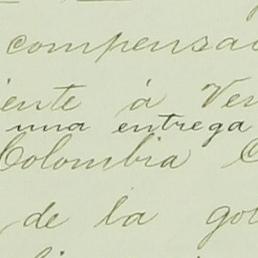 compensac
iente á Ven
una entrega
Colombia C
de la go